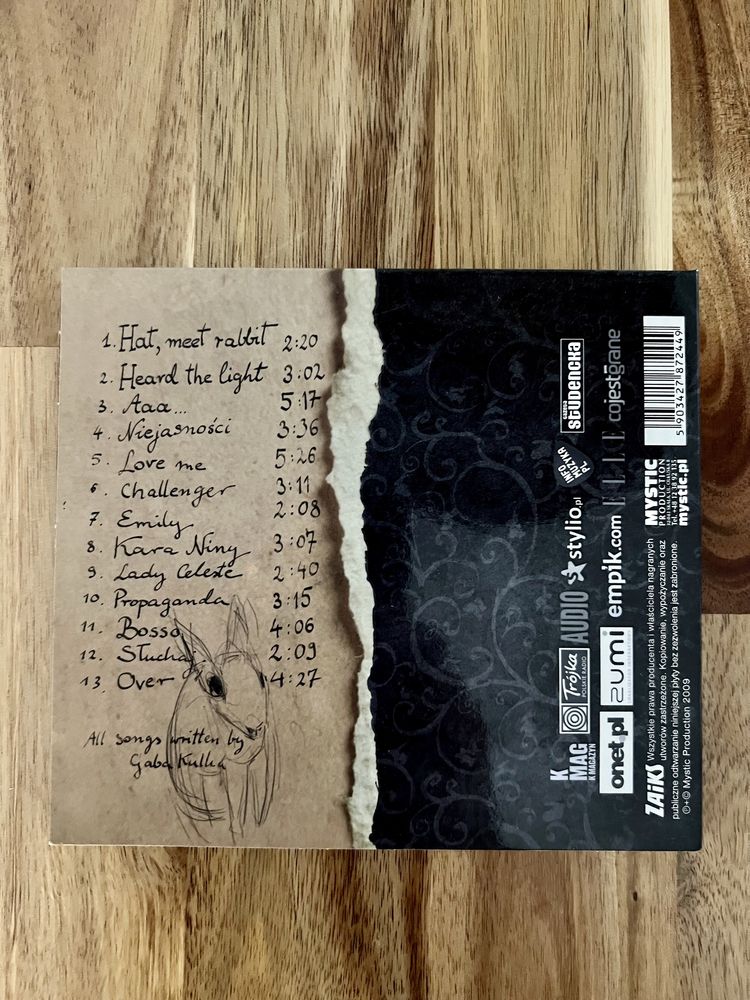 1. Hat, meet rabbit 2:20
2. Heard the light 3:02
3. Aaa... 5:17
4. Niejasności 3:36
5. Love me 5:26
6. Challenger 3:11
7. Emily 2:08
8. Kara Niny 3:07
9. Lady Celeste 2:40
10. Propaganda 3:15
11. Bosso 4:06
12. Słuchaj 2:09
13. Over 4:27
All songs written by
Gaba Kulka
K
MAG
K MAGAZYN
Trójka
POLSKIE RADIO
AUDIO
stylio.pl
INFO
MUZYKA
PL
gazeta
studencka
onet.pl
zumi
empik.com
ELLE
cojestgrane
ZAiKS
Wszystkie prawa producenta i właściciela nagranych
utworów zastrzeżone. Kopiowanie, wypożyczanie oraz
publiczne odtwarzanie niniejszej płyty bez zezwolenia jest zabronione.
℗+© Mystic Production 2009
MYSTIC
PRODUCTION
mystic.pl
5 903427 872449